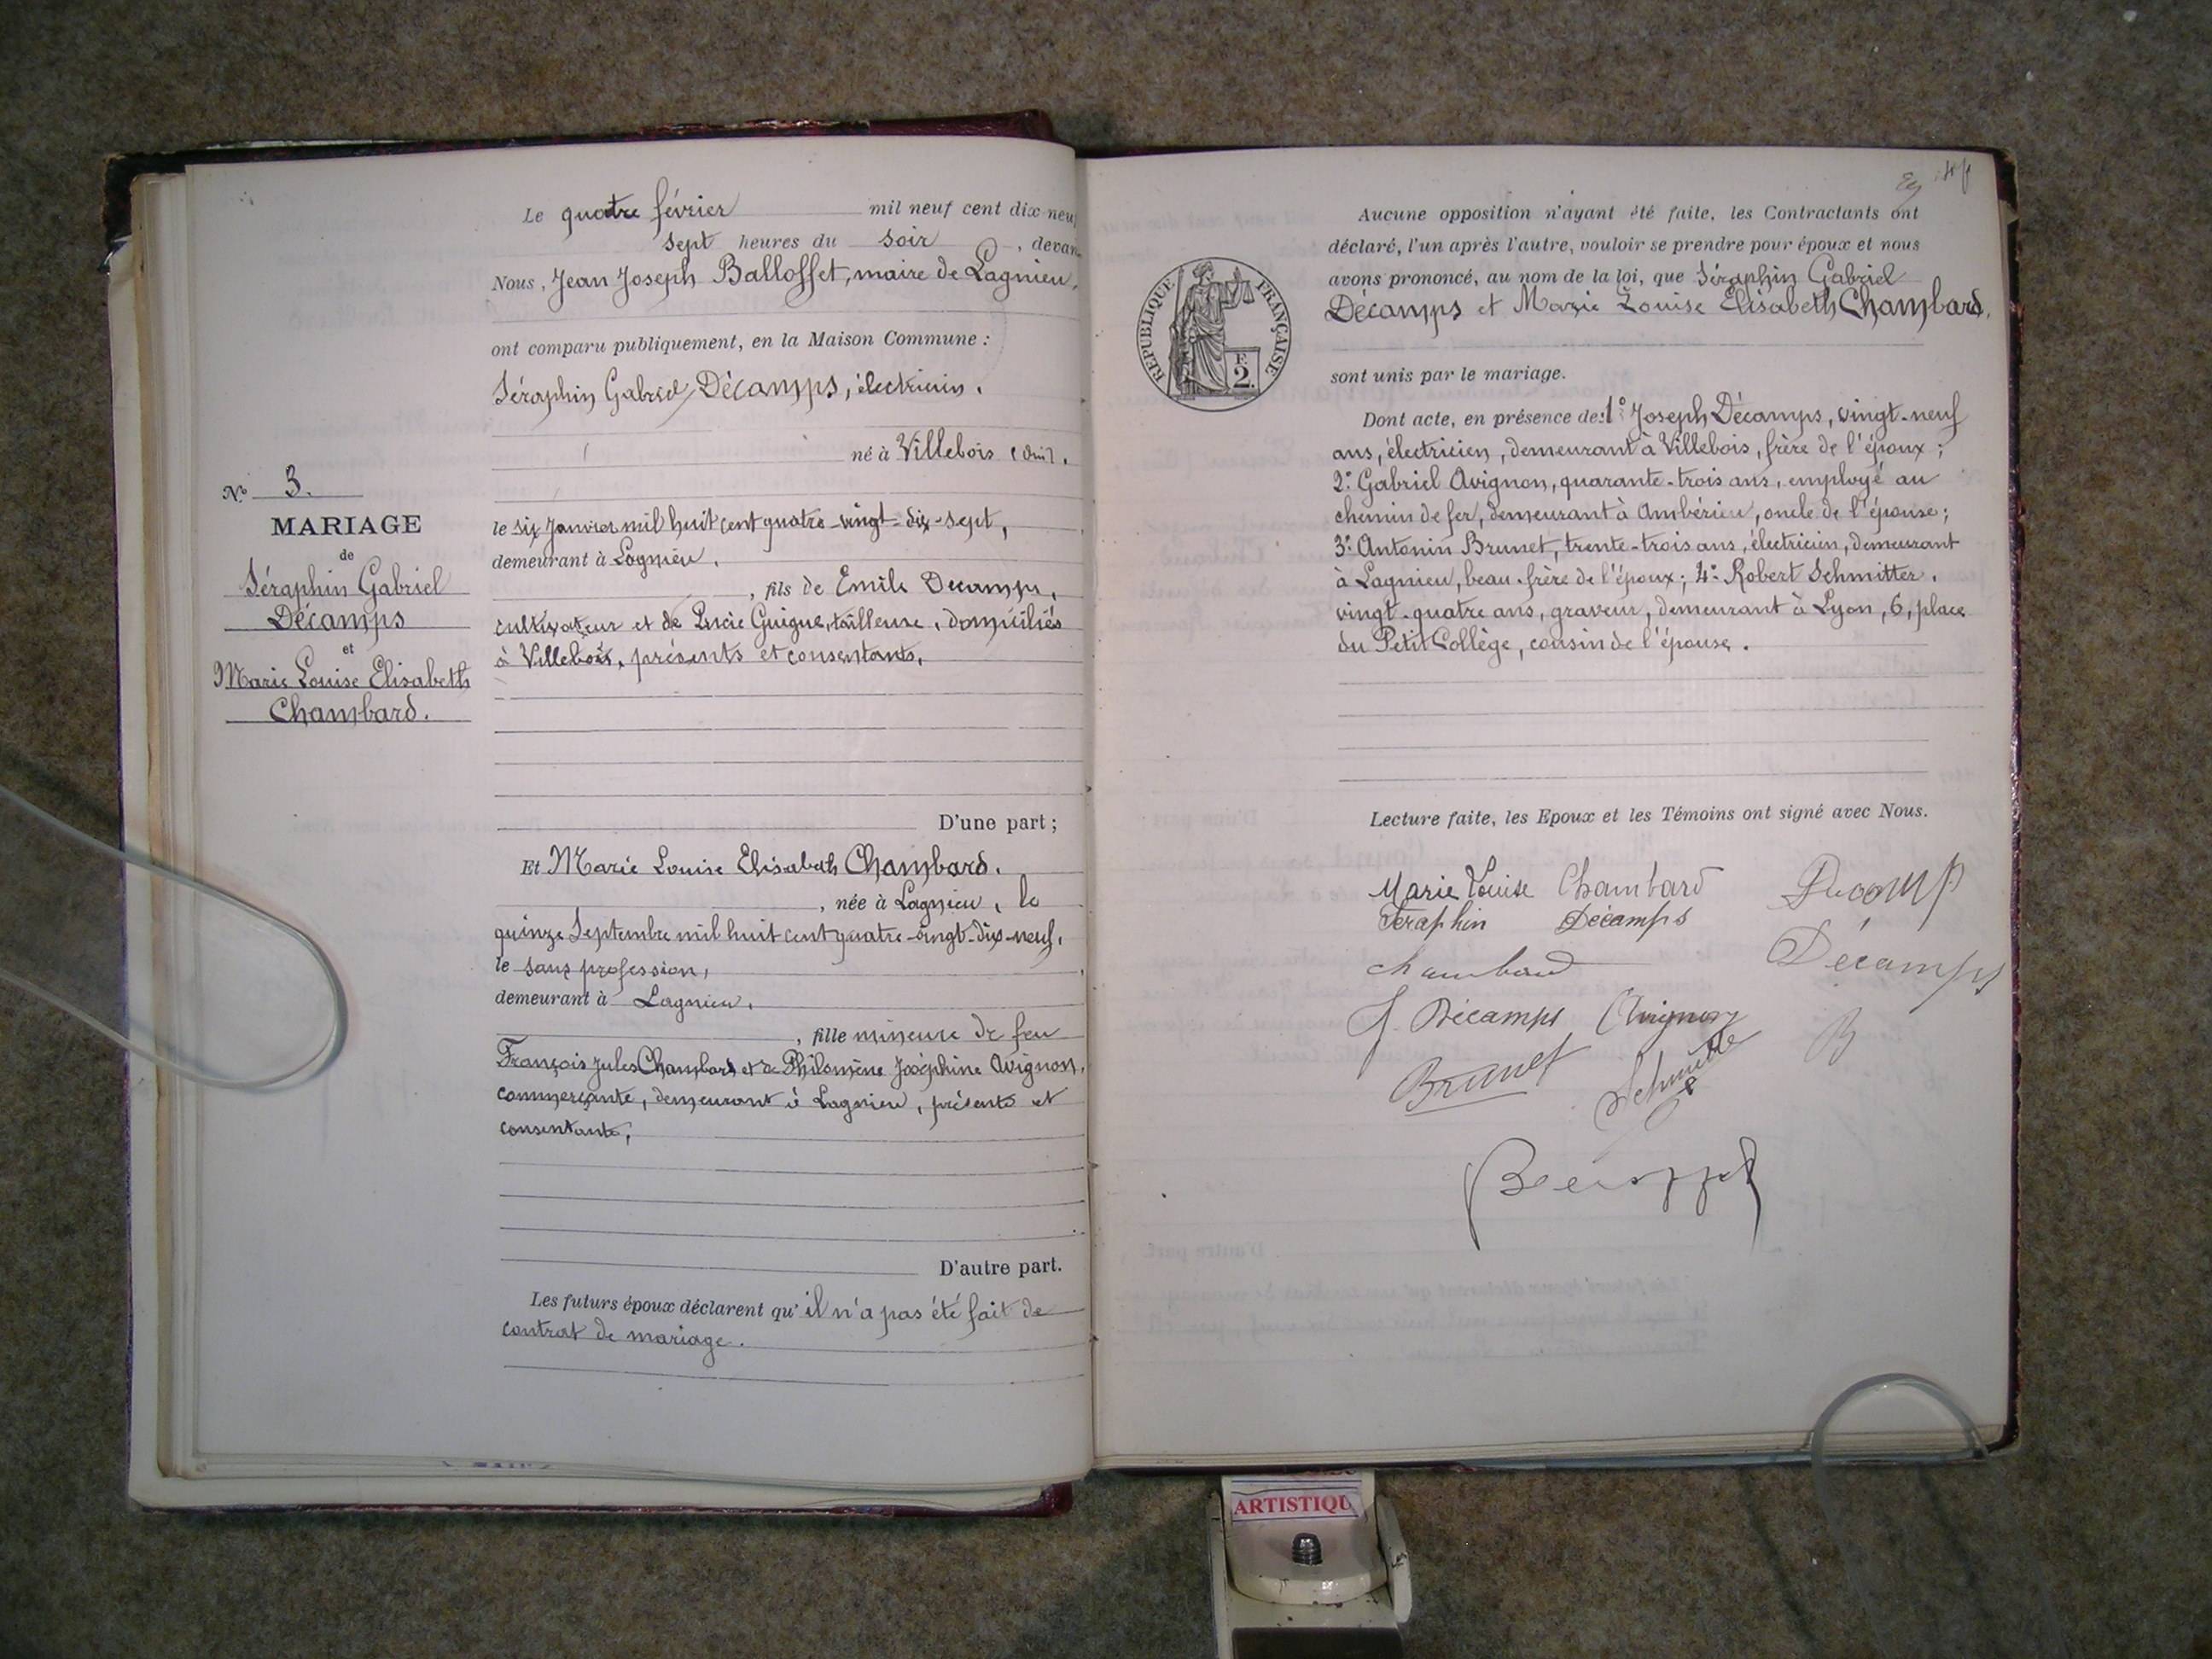 Le quatre février mil neuf cent dix-neuf
sept heures du soir, devan
Nous, Jean Joseph Balloffet, maire de Lagnieu,
ont comparu publiquement, en la Maison Commune :
Séraphin Gabriel Décamps, électricien.
né à Villebois (Ain),
le six Janvier mil huit cent quatre-vingt-dix-sept,
demeurant à Lagnieu,
, fils de Emile Decamps,
cultivateur et de Lucie Guigue, tailleuse, domiciliés
à Villebois, présents et consentants,
D'une part ;
Et Marie Louise Elisabeth Chambard.
, née à Lagnieu, le
quinze Septembre mil huit cent quatre-vingt-dix-neuf,
le sans profession,
demeurant à Lagnieu,
, fille mineure de feu
François Jules Chambard et de Philomène Joséphine Avignon,
commerçante, demeurant à Lagnieu, présents et
consentants,
D'autre part.
Les futurs époux déclarent qu'il n'a pas été fait de
contrat de mariage.
No 3.
MARIAGE
de
Séraphin Gabriel
Décamps
et
Marie Louise Elisabeth
Chambard.
Aucune opposition n'ayant été faite, les Contractants ont
déclaré, l'un après l'autre, vouloir se prendre pour époux et nous
avons prononcé, au nom de la loi, que Séraphin Gabriel
Décamps et Marie Louise Elisabeth Chambard,
sont unis par le mariage.
Dont acte, en présence de: 1° Joseph Décamps, vingt-neuf
ans, électricien, demeurant à Villebois, frère de l'époux ;
2° Gabriel Avignon, quarante-trois ans, employé au
chemin de fer, demeurant à Ambérieu, oncle de l'épouse ;
3° Antonin Brunet, trente-trois ans, électricien, demeurant
à Lagnieu, beau-frère de l'époux ; 4° Robert Schmitter,
vingt-quatre ans, graveur, demeurant à Lyon, 6, place
du Petit Collège, cousin de l'épouse.
RÉPUBLIQUE FRANÇAISE
F.
2.
Lecture faite, les Epoux et les Témoins ont signé avec Nous.
Marie Louise Chambard Decamp
Séraphin Décamps
Chambard Décamps
J. Décamps Avignon
Brunet Schmitter B
ARTISTIQU